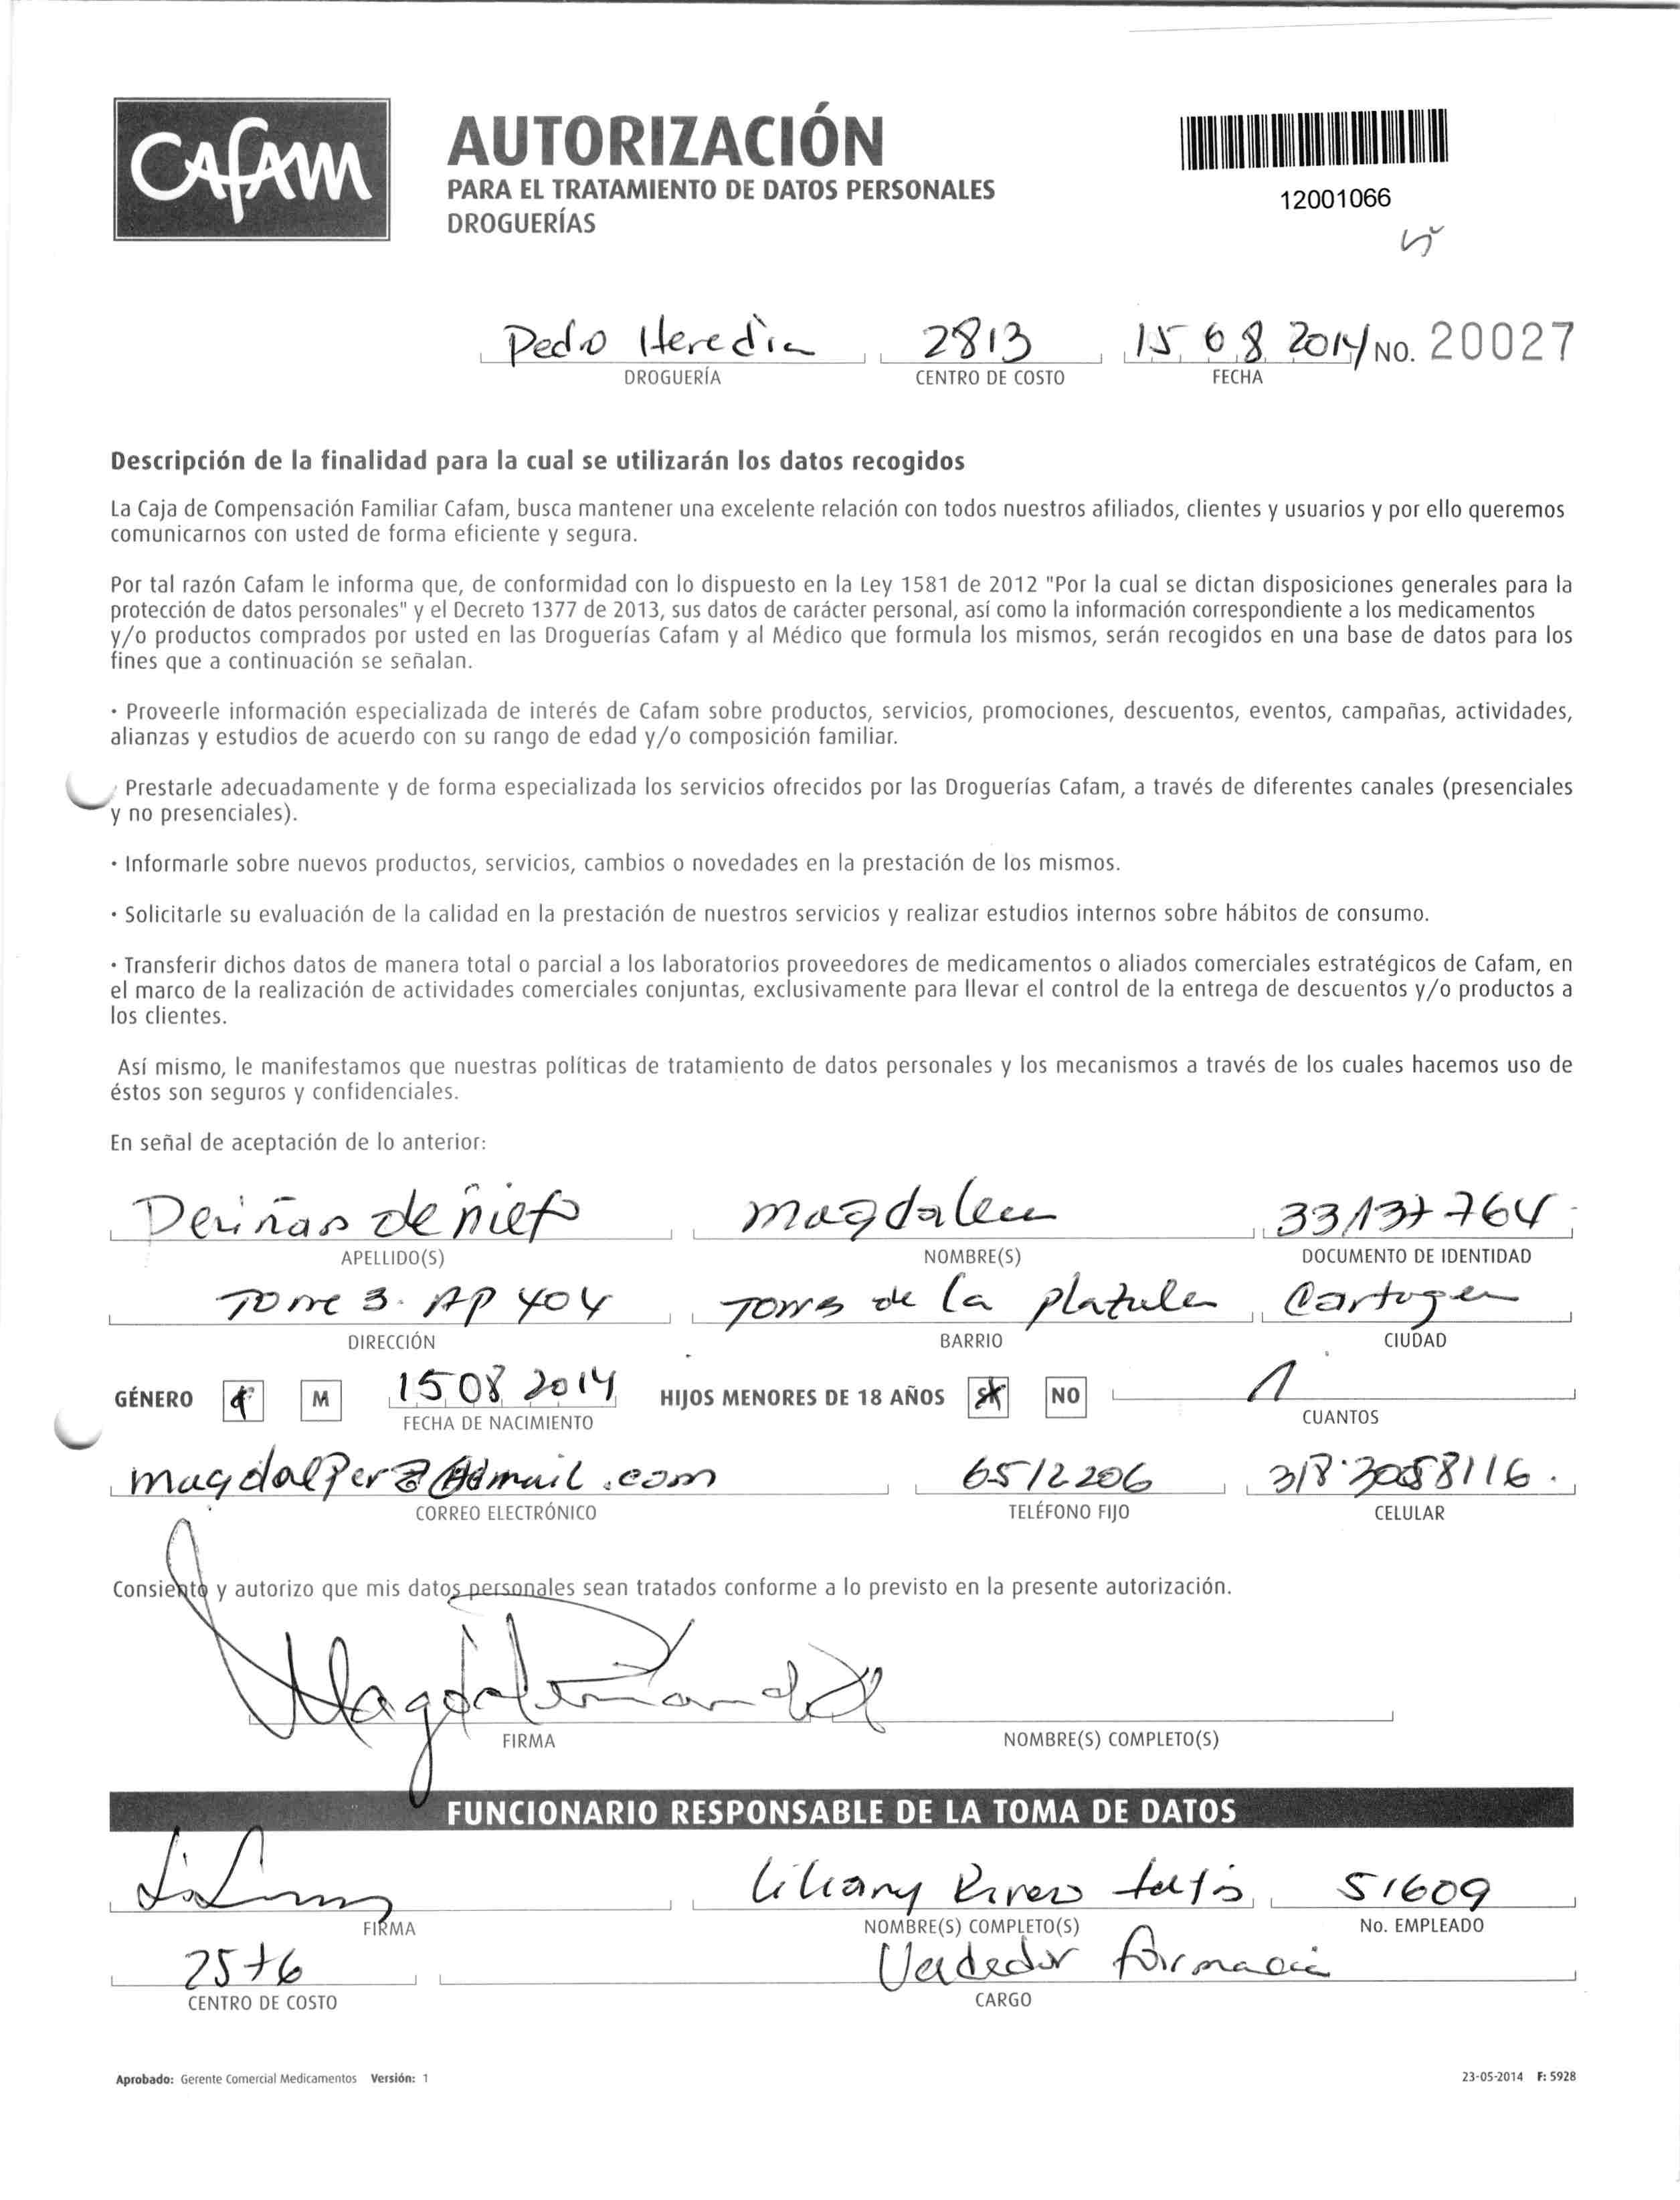 CAFAM
AUTORIZACIÓN
PARA EL TRATAMIENTO DE DATOS PERSONALES
DROGUERÍAS
12001066
Pedro Heredia 2813 15 08 2014 NO. 20027
DROGUERÍA CENTRO DE COSTO FECHA
Descripción de la finalidad para la cual se utilizarán los datos recogidos
La Caja de Compensación Familiar Cafam, busca mantener una excelente relación con todos nuestros afiliados, clientes y usuarios y por ello queremos
comunicarnos con usted de forma eficiente y segura.
Por tal razón Cafam le informa que, de conformidad con lo dispuesto en la Ley 1581 de 2012 "Por la cual se dictan disposiciones generales para la
protección de datos personales" y el Decreto 1377 de 2013, sus datos de carácter personal, así como la información correspondiente a los medicamentos
y/o productos comprados por usted en las Droguerías Cafam y al Médico que formula los mismos, serán recogidos en una base de datos para los
fines que a continuación se señalan.
· Proveerle información especializada de interés de Cafam sobre productos, servicios, promociones, descuentos, eventos, campañas, actividades,
alianzas y estudios de acuerdo con su rango de edad y/o composición familiar.
· Prestarle adecuadamente y de forma especializada los servicios ofrecidos por las Droguerías Cafam, a través de diferentes canales (presenciales
y no presenciales).
· Informarle sobre nuevos productos, servicios, cambios o novedades en la prestación de los mismos.
· Solicitarle su evaluación de la calidad en la prestación de nuestros servicios y realizar estudios internos sobre hábitos de consumo.
· Transferir dichos datos de manera total o parcial a los laboratorios proveedores de medicamentos o aliados comerciales estratégicos de Cafam, en
el marco de la realización de actividades comerciales conjuntas, exclusivamente para llevar el control de la entrega de descuentos y/o productos a
los clientes.
Así mismo, le manifestamos que nuestras políticas de tratamiento de datos personales y los mecanismos a través de los cuales hacemos uso de
éstos son seguros y confidenciales.
En señal de aceptación de lo anterior:
de magdalena 33137764
APELLIDO(S) NOMBRE(S) DOCUMENTO DE IDENTIDAD
Torre 3. AP 404 Torres de la Cartagena
DIRECCIÓN BARRIO CIUDAD
GÉNERO M 15 08 2014 HIJOS MENORES DE 18 AÑOS NO 1
FECHA DE NACIMIENTO CUANTOS
6512206
CORREO ELECTRÓNICO TELÉFONO FIJO CELULAR
Consiento y autorizo que mis datos personales sean tratados conforme a lo previsto en la presente autorización.
FIRMA NOMBRE(S) COMPLETO(S)
FUNCIONARIO RESPONSABLE DE LA TOMA DE DATOS
Liliany Rivero 51609
FIRMA NOMBRE(S) COMPLETO(S) No. EMPLEADO
2576 Vendedor farmacia
CENTRO DE COSTO CARGO
Aprobado: Gerente Comercial Medicamentos Versión: 1 23-05-2014 F: 5928